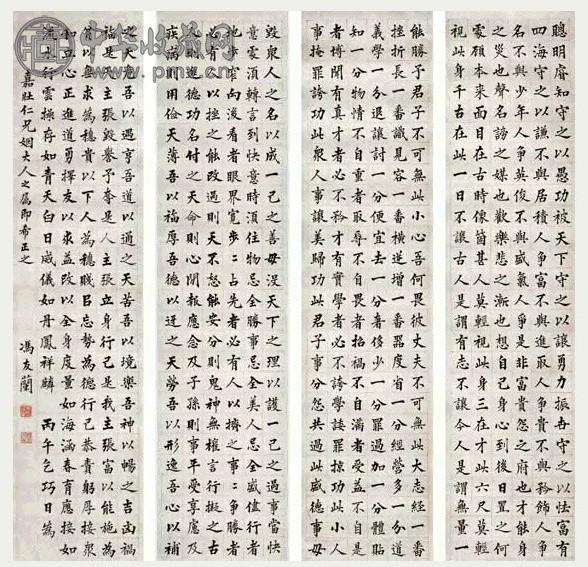 聰明睿知守之以愚功被天下守之以讓勇力振世守之以怯富有
四海守之以謙不與居積人爭富不與進取人爭貴不與矜飾人爭
名不與少年人爭英俊不與盛氣人爭是非富貴怨之府也才能身
之災也聲名謗之媒也歡樂悲之漸也想自己身心到後日置之何
處顧本來面目在古時像箇甚人莫輕視此身三在才此六尺莫輕
視此身千古在此一日不讓古人是謂有志不讓今人是謂無量一
能勝予君子不可無此小心吾何畏彼丈夫不可無此大志經一番
挫折長一番識見容一番橫逆增一番器度省一分經營多一分道
義學一分退讓討一分便宜去一分奢侈少一分罪過加一分體貼
知一分物情不自重者取辱不自畏者招禍不自滿者受益不自是
者博聞有真才者必不矜才有實學者必不誇學諉罪掠功此小人
事掩罪誇功此衆人事讓美歸功此君子事分怨共過此盛德事毋
毀衆人之名以成一己之善毋沒天下之理以護一己之過事當快
意處須轉言到快意時須住物忌全勝事忌全美人忌全盛儘行者
地步窄向後看者眼界寬步二占先者必有人以擠之事二爭勝者
必有人以挫之能改過則天不怒能安分則鬼神無權言行擬之古
人則德進功名付之天命則心閒報應念及子孫則事平受享慮及
疾病則用儉天薄吾以福厚吾德以迓之天勞吾以形逸吾心以補
之天危吾以遇亨吾道以通之天苦吾以境樂吾神以暢之吉凶禍
福是天主張毀譽予奪是人主張立身行己是我主張富以能施為
貧以無求為德貴以下人為德賤以忘勢為德行己恭責躬厚接衆
和立心正進道勇擇友以求益改以全身度量如海涵春育應接如
流水行雲操存如青天白日威儀如丹鳳祥麟 丙午乞巧日為
嘉壯仁兄姻大人之屬即希正之 馮友蘭
中华收藏网